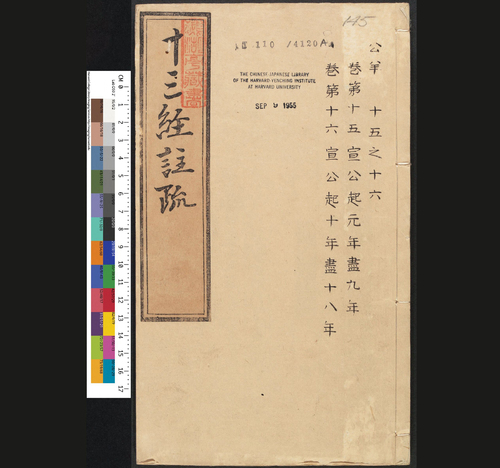 公羊 十五之十六
卷第十五宣公起元年盡九年
卷第十六宣公起十年盡十八年
145
110 /4120A
THE CHINESE-JAPANESE LIBRARY
OF THE HARVARD-YENCHING INSTITUTE
AT HARVARD UNIVERSITY
SEP 9 1955
十三經註疏
CM 0
1
2
3
4
5
6
7
8
9
10
11
12
13
14
15
16
17